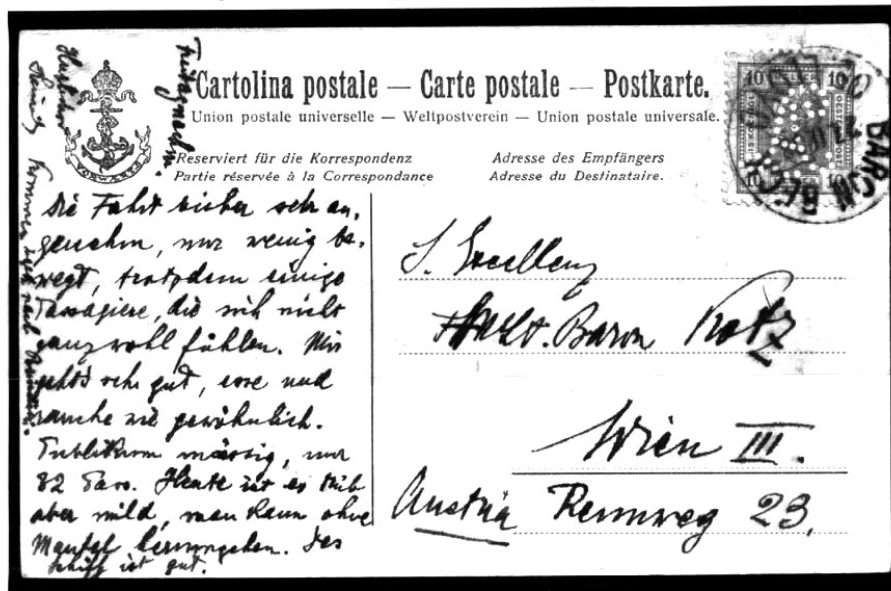 Cartolina postale — Carte postale — Postkarte.
Union postale universelle — Weltpostverein — Union postale universale.
Reserviert für die Korrespondenz
Partie réservée à la Correspondance
Adresse des Empfängers
Adresse du Destinataire.
VORWÄRTS
10 HELLER 10
10 10
Freitag
Die Fahrt bisher sehr an-
genehm, nur wenig be-
wegt, trotzdem einige
Passagiere, die sich nicht
ganz wohl fühlen. Mir
geht's sehr gut, esse und
rauche wie gewöhnlich.
Publikum mässig, nur
82 Pass. Heute ist es trüb
aber mild, man kann ohne
Mantel herumgehen. Das
Schiff ist gut.
S. Excellenz
Baron Kotz
Wien III.
Austria Rennweg 23.